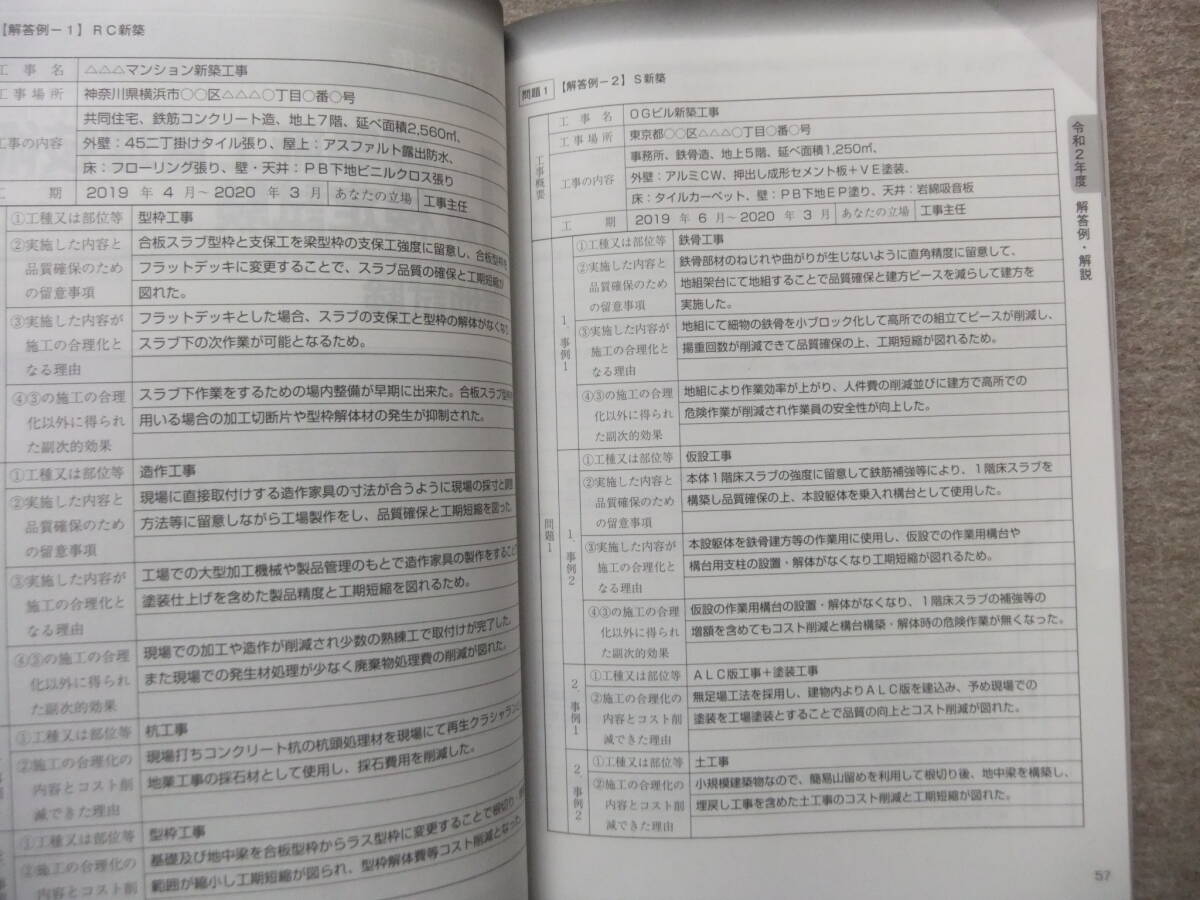 【解答例－1】ＲＣ新築
工事名 △△△マンション新築工事
工事場所 神奈川県横浜市○○区△△△○丁目○番○号
工事の内容
共同住宅、鉄筋コンクリート造、地上７階、延べ面積2,560㎡、
外壁：45二丁掛けタイル張り、屋上：アスファルト露出防水、
床：フローリング張り、壁・天井：ＰＢ下地ビニルクロス張り
工期 2019 年 4 月～ 2020 年 3 月 あなたの立場 工事主任
①工種又は部位等 型枠工事
②実施した内容と
品質確保のため
の留意事項
合板スラブ型枠と支保工を梁型枠の支保工強度に留意し、合板型枠を
フラットデッキに変更することで、スラブ品質の確保と工期短縮が
図れた。
③実施した内容が
施工の合理化と
なる理由
フラットデッキとした場合、スラブの支保工と型枠の解体がなくなり
スラブ下の次作業が可能となるため。
④③の施工の合理
化以外に得られ
た副次的効果
スラブ下作業をするための場内整備が早期に出来た。合板スラブ型枠を
用いる場合の加工切断片や型枠解体材の発生が抑制された。
①工種又は部位等 造作工事
②実施した内容と
品質確保のため
の留意事項
現場に直接取付けする造作家具の寸法が合うように現場の採寸と
方法等に留意しながら工場製作をし、品質確保と工期短縮を図った。
③実施した内容が
施工の合理化と
なる理由
工場での大型加工機械や製品管理のもとで造作家具の製作をすること
塗装仕上げを含めた製品精度と工期短縮を図れるため。
④③の施工の合理
化以外に得られ
た副次的効果
現場での加工や造作が削減され少数の熟練工で取付けが完了した。
また現場での発生材処理が少なく廃棄物処理費の削減が図れた。
①工種又は部位等 杭工事
②施工の合理化の
内容とコスト削
減できた理由
現場打ちコンクリート杭の杭頭処理材を現場にて再生クラシャランに
地業工事の採石材として使用し、採石費用を削減した。
①工種又は部位等 型枠工事
②施工の合理化の
内容とコスト削
基礎及び地中梁を合板型枠からラス型枠に変更することで根切り
範囲が縮小し工期短縮が図られ、型枠解体費等コスト削減となった
問題１ 【解答例－2】Ｓ新築
工事概要
工事名 ＯＧビル新築工事
工事場所 東京都○○区△△△○丁目○番○号
工事の内容
事務所、鉄骨造、地上５階、延べ面積1,250㎡、
外壁：アルミＣＷ、押出し成形セメント板＋ＶＥ塗装、
床：タイルカーペット、壁：ＰＢ下地ＥＰ塗り、天井：岩綿吸音板
工期 2019 年 6 月～ 2020 年 3 月 あなたの立場 工事主任
問題１
１．事例１
①工種又は部位等 鉄骨工事
②実施した内容と
品質確保のため
の留意事項
鉄骨部材のねじれや曲がりが生じないように直角精度に留意して、
地組架台にて地組することで品質確保と建方ピースを減らして建方を
実施した。
③実施した内容が
施工の合理化と
なる理由
地組にて細物の鉄骨を小ブロック化して高所での組立てピースが削減し、
揚重回数が削減できて品質確保の上、工期短縮が図れるため。
④③の施工の合理
化以外に得られ
た副次的効果
地組により作業効率が上がり、人件費の削減並びに建方で高所での
危険作業が削減され作業員の安全性が向上した。
１．事例２
①工種又は部位等 仮設工事
②実施した内容と
品質確保のため
の留意事項
本体１階床スラブの強度に留意して鉄筋補強等により、１階床スラブを
構築し品質確保の上、本設躯体を乗入れ構台として使用した。
③実施した内容が
施工の合理化と
なる理由
本設躯体を鉄骨建方等の作業用に使用し、仮設での作業用構台や
構台用支柱の設置・解体がなくなり工期短縮が図れるため。
④③の施工の合理
化以外に得られ
た副次的効果
仮設の作業用構台の設置・解体がなくなり、１階床スラブの補強等の
増額を含めてもコスト削減と構台構築・解体時の危険作業が無くなった。
２．事例１
①工種又は部位等 ＡＬＣ版工事＋塗装工事
②施工の合理化の
内容とコスト削
減できた理由
無足場工法を採用し、建物内よりＡＬＣ版を建込み、予め現場での
塗装を工場塗装とすることで品質の向上とコスト削減が図れた。
２．事例２
①工種又は部位等 土工事
②施工の合理化の
内容とコスト削
減できた理由
小規模建築物なので、簡易山留めを利用して根切り後、地中梁を構築し、
埋戻し工事を含めた土工事のコスト削減と工期短縮が図れた。
令和２年度 解答例・解説
57